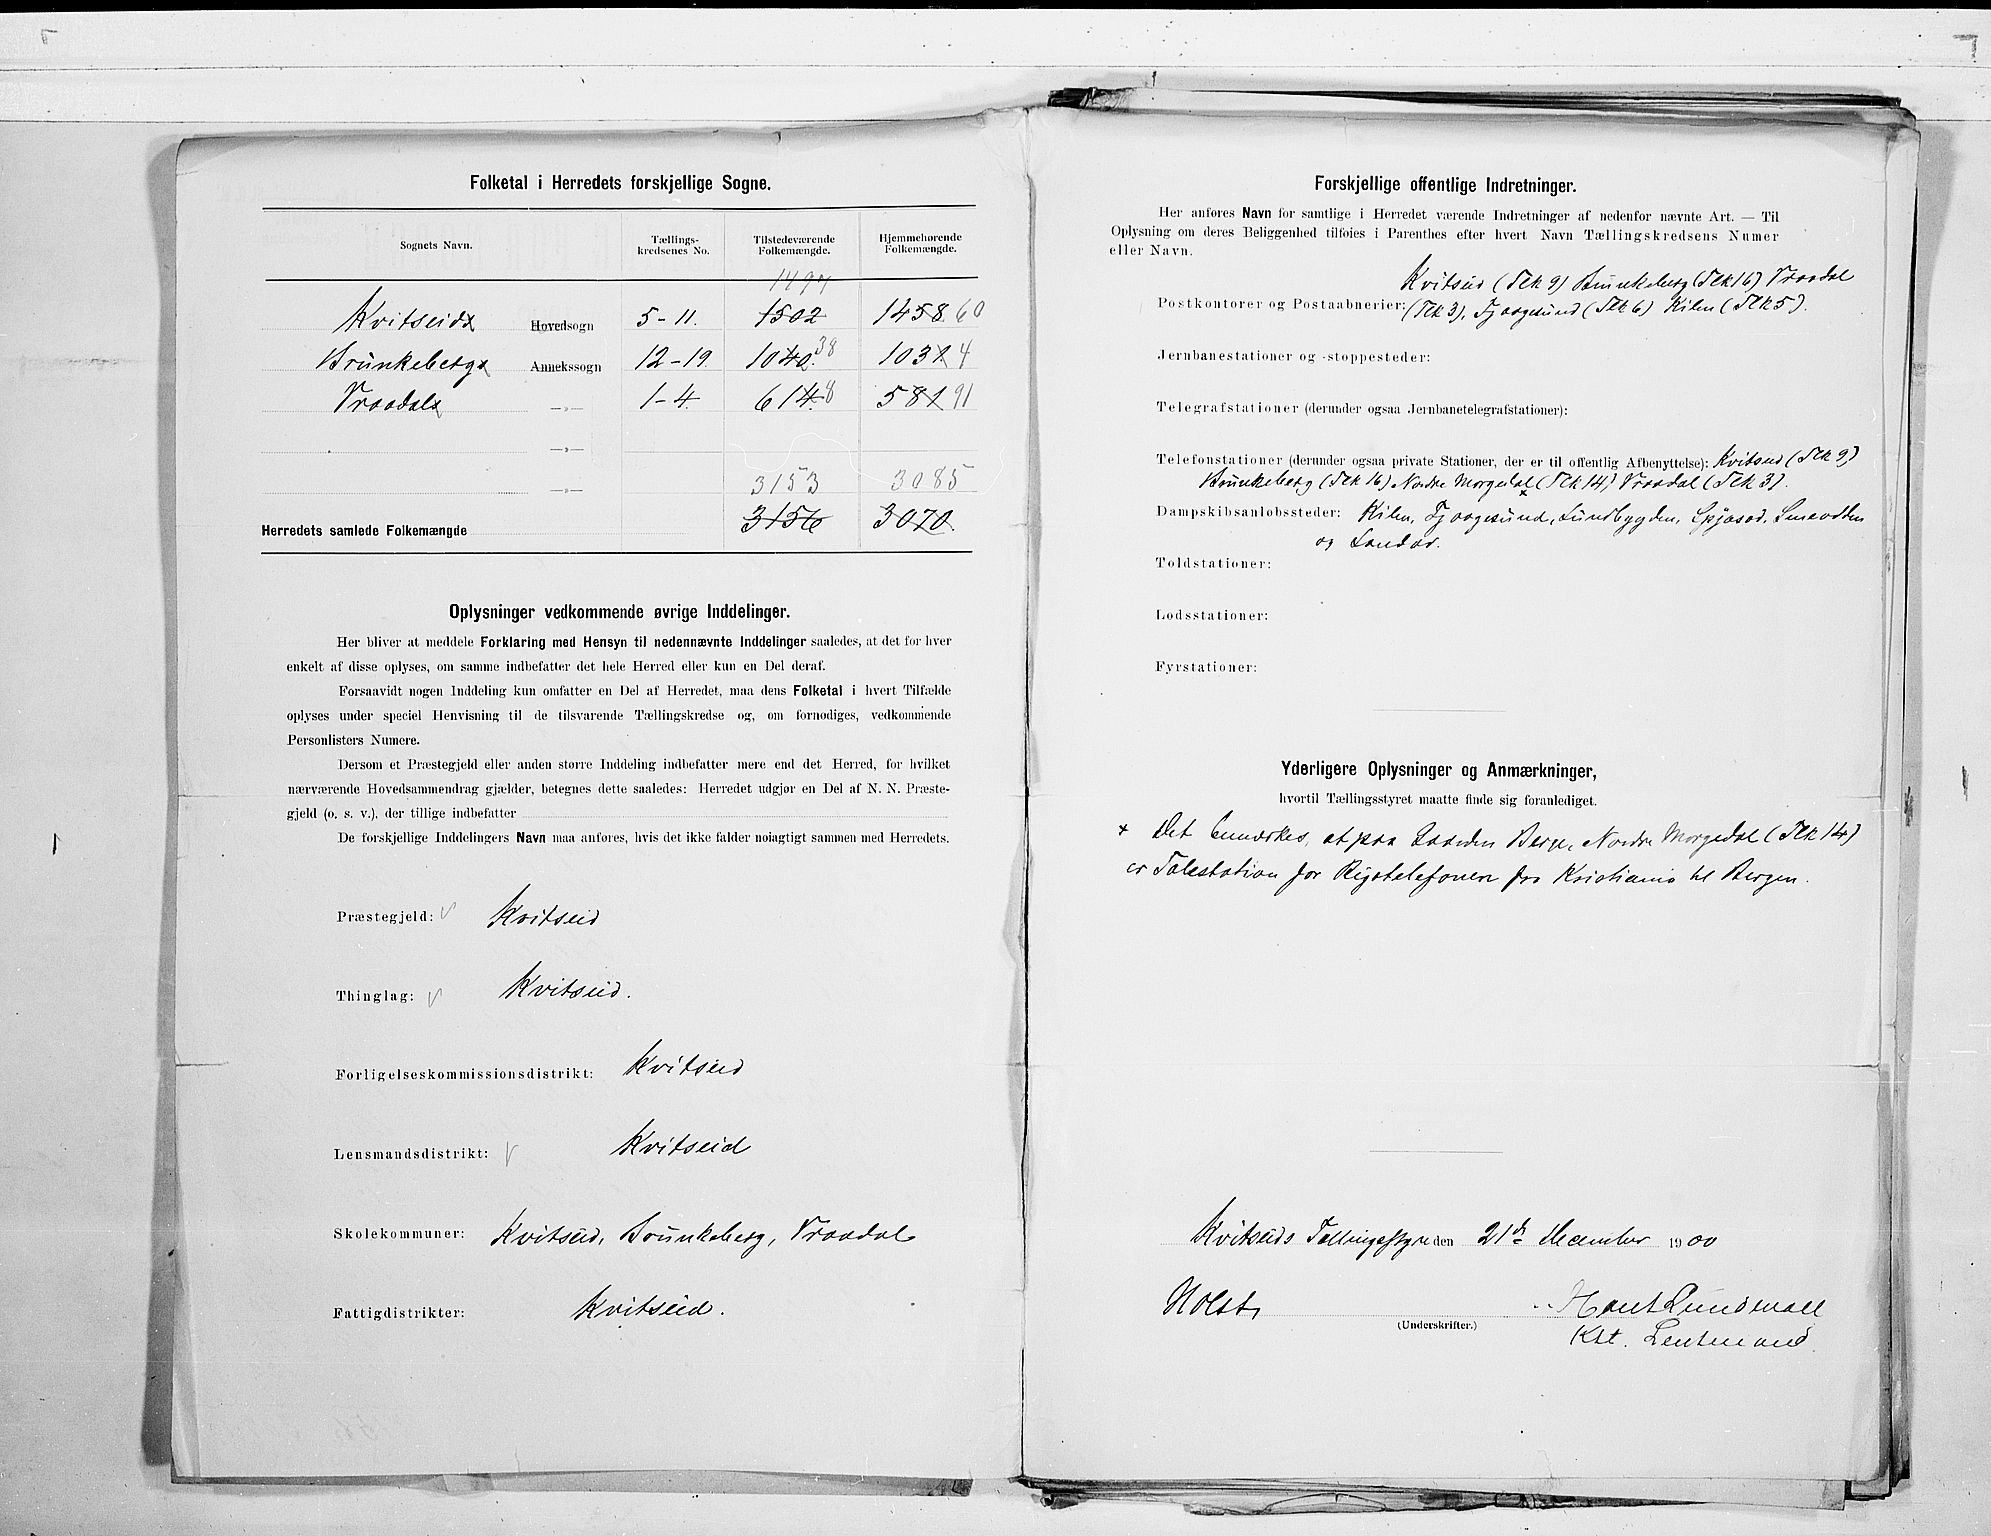 Folketal i Herredets forskjellige Sogne.
Sognets Navn.
Tællings-
kredsenes No.
Tilstedeværende
Folkemængde.
Hjemmehørende
Folkemængde.
1497
Kvitseids Hovedsogn 5-11. 1502 1458 60
Brunkebergs Annekssogn 12-19. 1040. 38 1031 4
Vraadals —„— 1-4. 614. 8 581 91
—„—
—„— 3153 3085
Herredets samlede Folkemængde 3156 3070.
Oplysninger vedkommende øvrige Inddelinger.
Her bliver at meddele Forklaring med Hensyn til nedennævnte Inddelinger saaledes, at det for hver
enkelt af disse oplyses, om samme indbefatter det hele Herred eller kun en Del deraf.
Forsaavidt nogen Inddeling kun omfatter en Del af Herredet, maa dens Folketal i hvert Tilfælde
oplyses under speciel Henvisning til de tilsvarende Tællingskredse og, om fornødiges, vedkommende
Personlisters Numere.
Dersom et Præstegjeld eller anden større Inddeling indbefatter mere end det Herred, for hvilket
nærværende Hovedsammendrag gjælder, betegnes dette saaledes: Herredet udgjør en Del af N. N. Præste-
gjeld (o. s. v.), der tillige indbefatter
De forskjellige Inddelingers Navn maa anføres, hvis det ikke falder nøiagtigt sammen med Herredets.
Præstegjeld: Kvitseid
Thinglag: Kvitseid.
Forligelseskommissionsdistrikt: Kvitseid
Lensmandsdistrikt: Kvitseid
Skolekommuner: Kvitseid, Brunkeberg, Vraadal
Fattigdistrikter: Kvitseid.
Forskjellige offentlige Indretninger.
Her anføres Navn for samtlige i Herredet værende Indretninger af nedenfor nævnte Art. — Til
Oplysning om deres Beliggenhed tilføies i Parenthes efter hvert Navn Tællingskredsens Numer
eller Navn.
Kvitseid (Tlk 9) Brunkeberg (Tlk 16) Vraadal
Postkontorer og Postaabnerier: (Tlk 3), Fjaagesund (Tlk 6) Kilen (Tlk 5).
Jernbanestationer og -stoppesteder:
Telegrafstationer (derunder ogsaa Jernbanetelegrafstationer):
Telefonstationer (derunder ogsaa private Stationer, der er til offentlig Afbenyttelse): Kvitseid (Tlk 9)
Brunkeberg (Tlk 16) Nordre Morgedal × (Tlk 14) Vraadal (Tlk 3).
Dampskibsanløbssteder: Kilen, Fjaagesund, Sundbygden, Spjosod, Smeodden
og Sandar.
Toldstationer:
Lodsstationer:
Fyrstationer:
Yderligere Oplysninger og Anmærkninger,
hvortil Tællingsstyret maatte finde sig foranlediget.
× Det bemærkes, at paa Gaarden Berge, Nordre Morgedal (Tlk 14)
er Talestation for Rigstelefonen fra Kristiania til Bergen.
Kvitseids Tællingsstyre den 21de December 1900
Holst
(Underskrifter.)
Kst. Lensmand